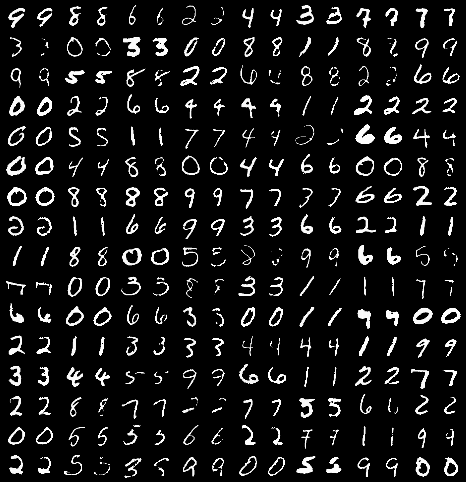 9 9 8 8 6 6 2 2 4 4 3 3 7 7 7 7
3 3 0 0 3 3 0 0 8 8 1 1 8 8 9 9
9 9 5 5 8 8 2 2 6 6 8 8 2 2 6 6
0 0 2 2 6 6 4 4 4 4 1 1 2 2 2 2
0 0 5 5 1 1 7 7 4 4 2 6 6 4 4
0 0 4 4 8 8 0 0 4 4 6 6 0 0 8 8
0 0 8 8 8 8 9 9 7 7 3 3 6 6 2 2
2 2 1 1 6 6 9 9 3 3 6 6 2 2 1 1
1 1 8 8 0 0 5 5 8 8 9 9 6 6 5 5
7 7 0 0 3 3 8 8 3 3 1 1 1 1 7 7
6 6 0 0 6 6 3 3 0 0 1 1 9 9 0 0
2 2 1 1 3 3 3 3 4 4 4 4 1 1 9 9
3 3 4 4 5 5 9 9 6 6 1 1 2 2 7 7
2 2 8 8 7 7 7 7 5 5 6 6 2 2
0 0 5 5 5 5 6 6 2 2 7 7 1 1 9 9
2 2 5 5 3 3 9 9 0 0 5 5 9 9 0 0